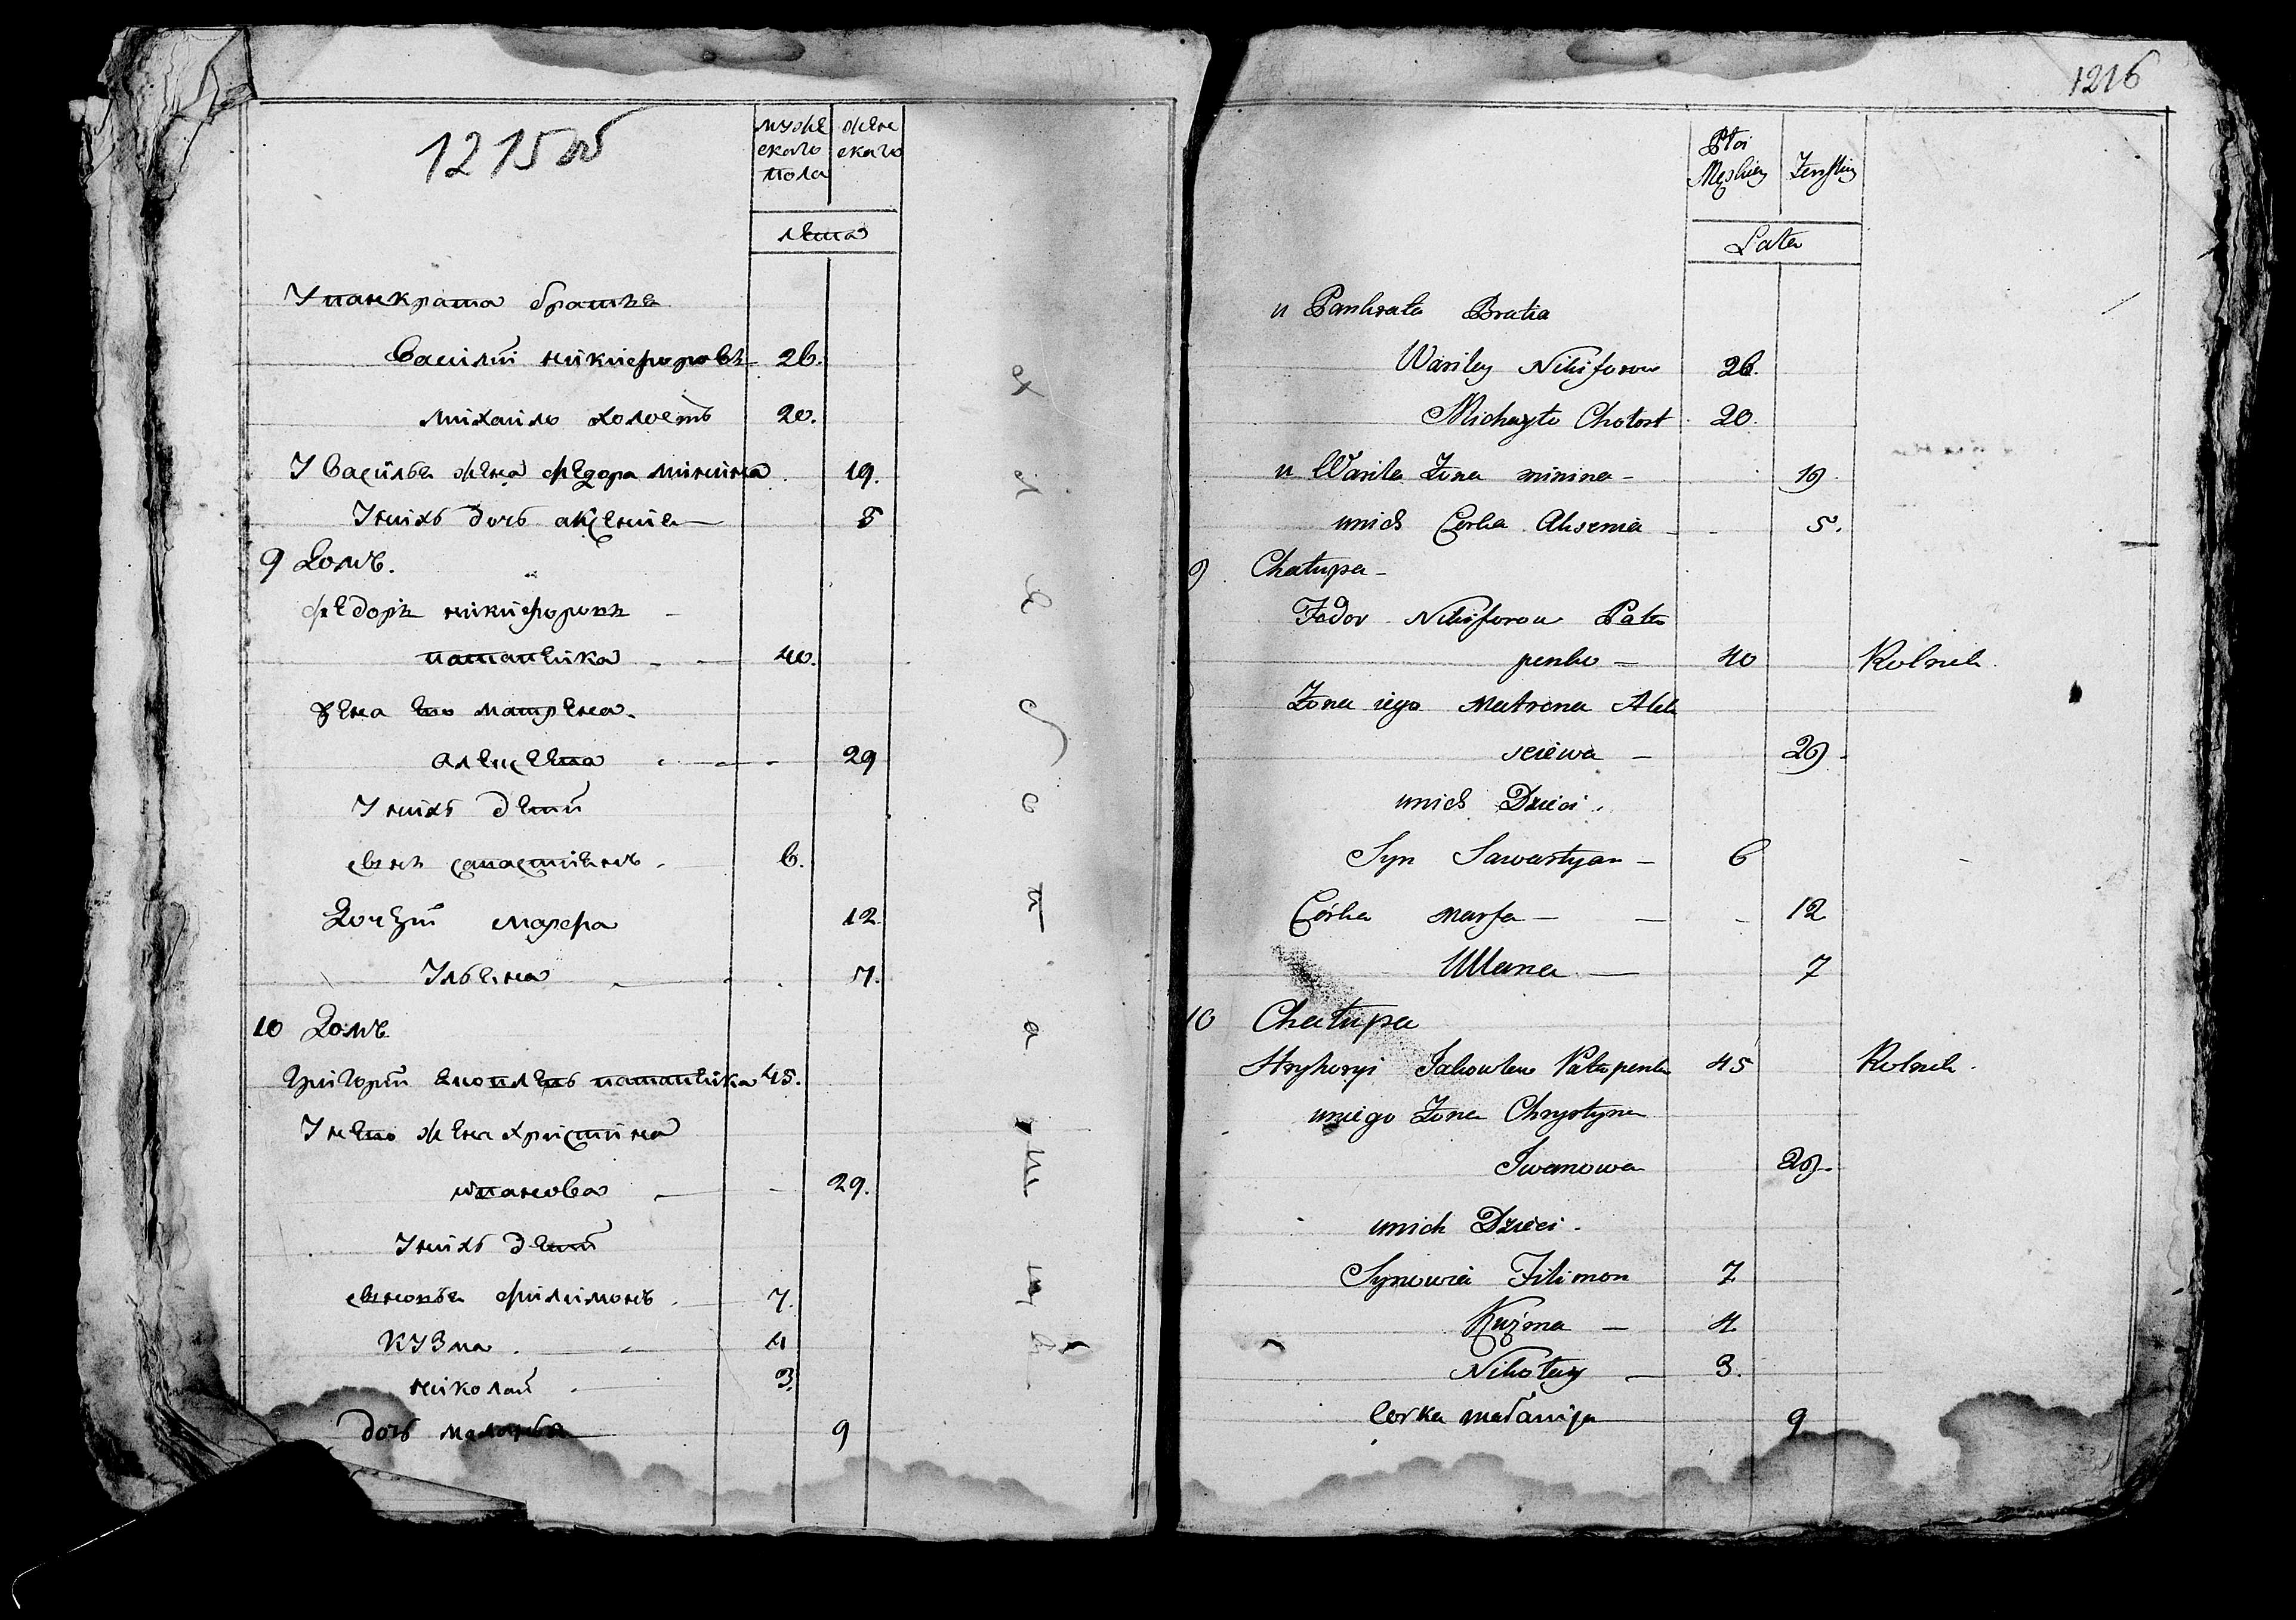 1215 об
муже
скаго
пола
жен
скаго
лета
У панкрата братья
Василій никифоровъ 26.
михаило холостъ 20.
У Василья жена федора минина 19.
У нихъ дочъ аксения 5
9 Домъ.
федоръ никифоровъ
патапенка 40.
жена его матрена
алексеева 29
У нихъ детй
сынъ савастиянъ 6.
Дочерй марфа 12.
Ульяна 7.
10 Домъ
григорій яковлевъ патапенка 45.
У него жена христина
иванова 29.
У нихъ детй
сыновья филимонъ 7.
кузма 4
николай 3.
дочъ маланья 9
1216
Płci
Męskiey
Żenskiey
Lata
u Pankrata Bratia
Wasiley Nikiforow 26.
Michayło Chołost 20.
u Wasila Żona minina 19.
unich Corka Aksenia 5.
9 Chałupa
Fedor Nikiforow Pata
penko 40 Rolnik
Żona iego Matrona Alek
seiewa 29
unich Dzieci
Syn Sawastyan 6
Córka marfa 12
Ullana 7
10 Chałupa
Hryhoryi Jakowlew Patapenko 45 Rolnik.
uniego Żona Chrystyna
Iwanowa 29.
unich Dzieci.
Synowie Filimon 7
Kuźma 4
Nikołay 3.
Corka małanija 9